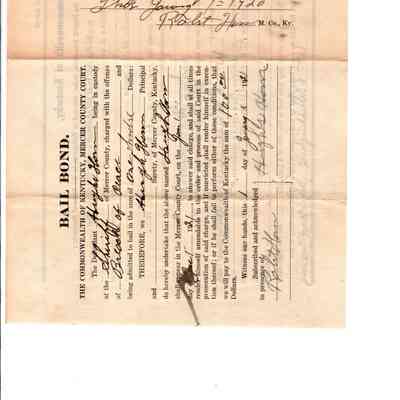 This Jany 1 - 1920
Robt Horn M. Co., Ky.
BAIL BOND.
THE COMMONWEALTH OF KENTUCKY, MERCER COUNTY COURT.
The Defendant Hugh Horn being in custody
of the Sheriff of Mercer County, charged with the offense
of Breach of Peace and
being admitted to bail in the sum of One hundred Dollars:
THEREFORE, we Hugh Horn Principal
and Surety, of Mercer County, Kentucky,
do hereby undertake that the above named Hugh Horn
shall appear in the Mercer County Court, on the
day 1921 to answer said charge, and shall at all times
render himself amendable to the order and process of said Court in the
prosecution of said charge, and if convicted shall render himself in execu-
tion thereof; or if he shall fail to perform either of these conditions, that
we will pay to the Commonwealth of Kentucky the sum of 100.00
Dollars.
Witness our hands, this 1 day of Jany 1921
Subscribed and acknowledged
in presence of
Hugh Horn
Robt Horn